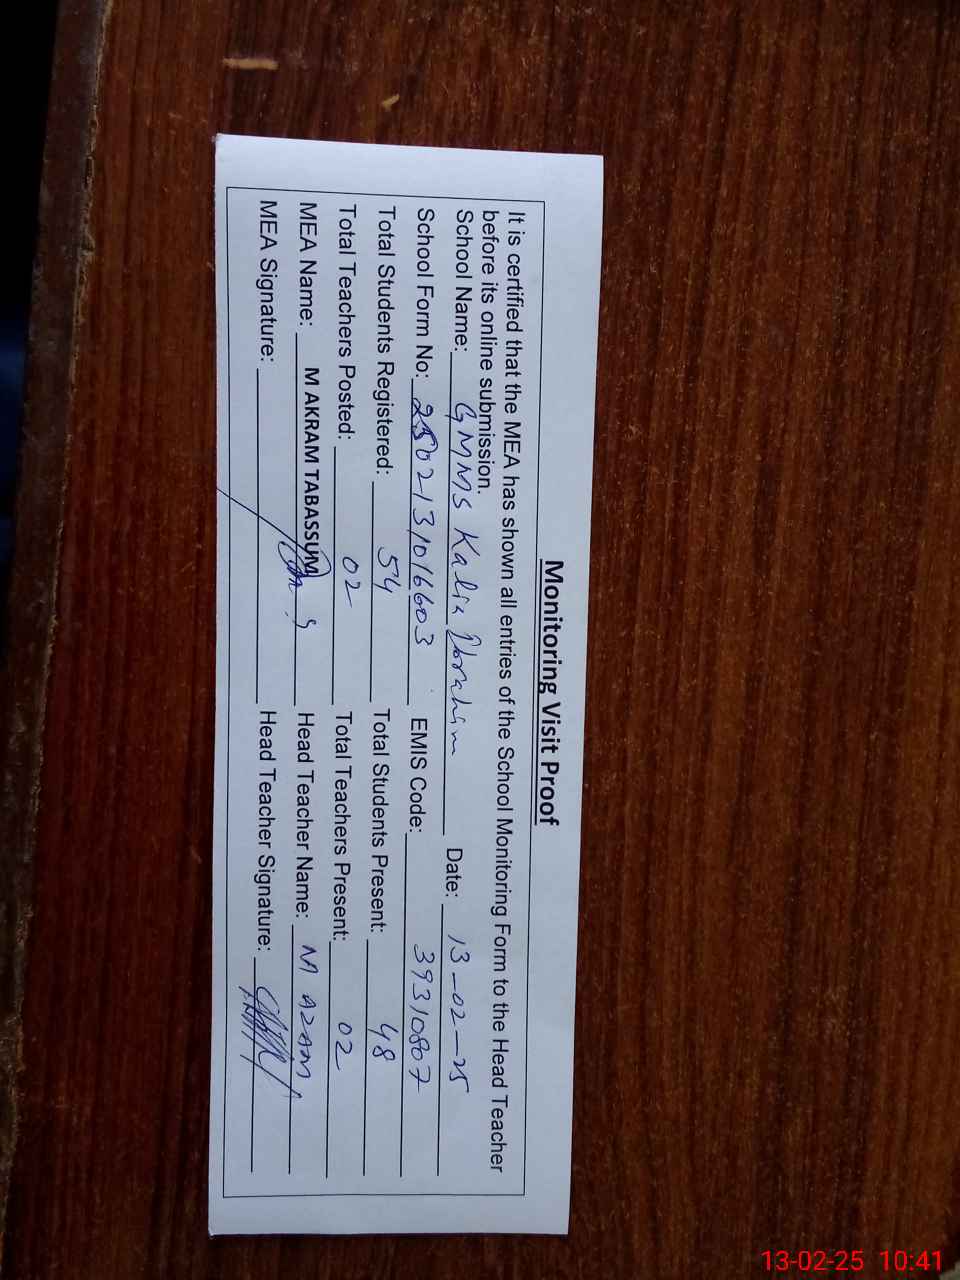 Monitoring Visit Proof
It is certified that the MEA has shown all entries of the School Monitoring Form to the Head Teacher
before its online submission.
School Name: GMMS Kalia Ibrahim Date: 13-02-25
School Form No: 2502131016603 EMIS Code: 39310807
Total Students Registered: 54 Total Students Present: 48
Total Teachers Posted: 02 Total Teachers Present: 02
MEA Name: M AKRAM TABASSUM Head Teacher Name: M AZAM
MEA Signature: Head Teacher Signature:
13-02-25 10:41